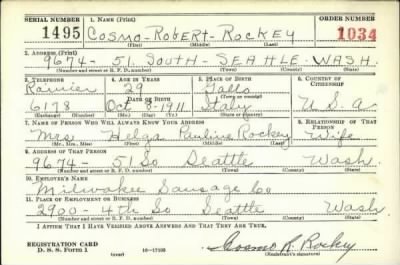 SERIAL NUMBER 1. NAME (Print) ORDER NUMBER
1495 COSMO - ROBERT - ROCKEY 1034
(First) (Middle) (Last)
2. ADDRESS (Print)
9674 - 51. SOUTH - SEATTLE - WASH.
(Number and street or R. F. D. number) (Town) (County) (State)
3. TELEPHONE 4. AGE IN YEARS 5. PLACE OF BIRTH 6. COUNTRY OF CITIZENSHIP
Rainier 29 Gallo
DATE OF BIRTH (Town or county)
6178 Oct 8 - 1911 Italy U. S. A.
(Exchange) (Number) (Mo.) (Day) (Yr.) (State or country)
7. NAME OF PERSON WHO WILL ALWAYS KNOW YOUR ADDRESS 8. RELATIONSHIP OF THAT PERSON
Mrs Helga Pauline Rockey Wife
(Mr., Mrs., Miss) (First) (Middle) (Last)
9. ADDRESS OF THAT PERSON
9674 - 51 So Seattle Wash.
(Number and street or R. F. D. number) (Town) (County) (State)
10. EMPLOYER'S NAME
Milwakee Sausage Co
11. PLACE OF EMPLOYMENT OR BUSINESS
2900 - 4th So Seattle Wash.
(Number and street or R. F. D. number) (Town) (County) (State)
I AFFIRM THAT I HAVE VERIFIED ABOVE ANSWERS AND THAT THEY ARE TRUE.
REGISTRATION CARD
D. S. S. Form 1 (over) 16—17105 Cosmo R. Rockey
(Registrant's signature)